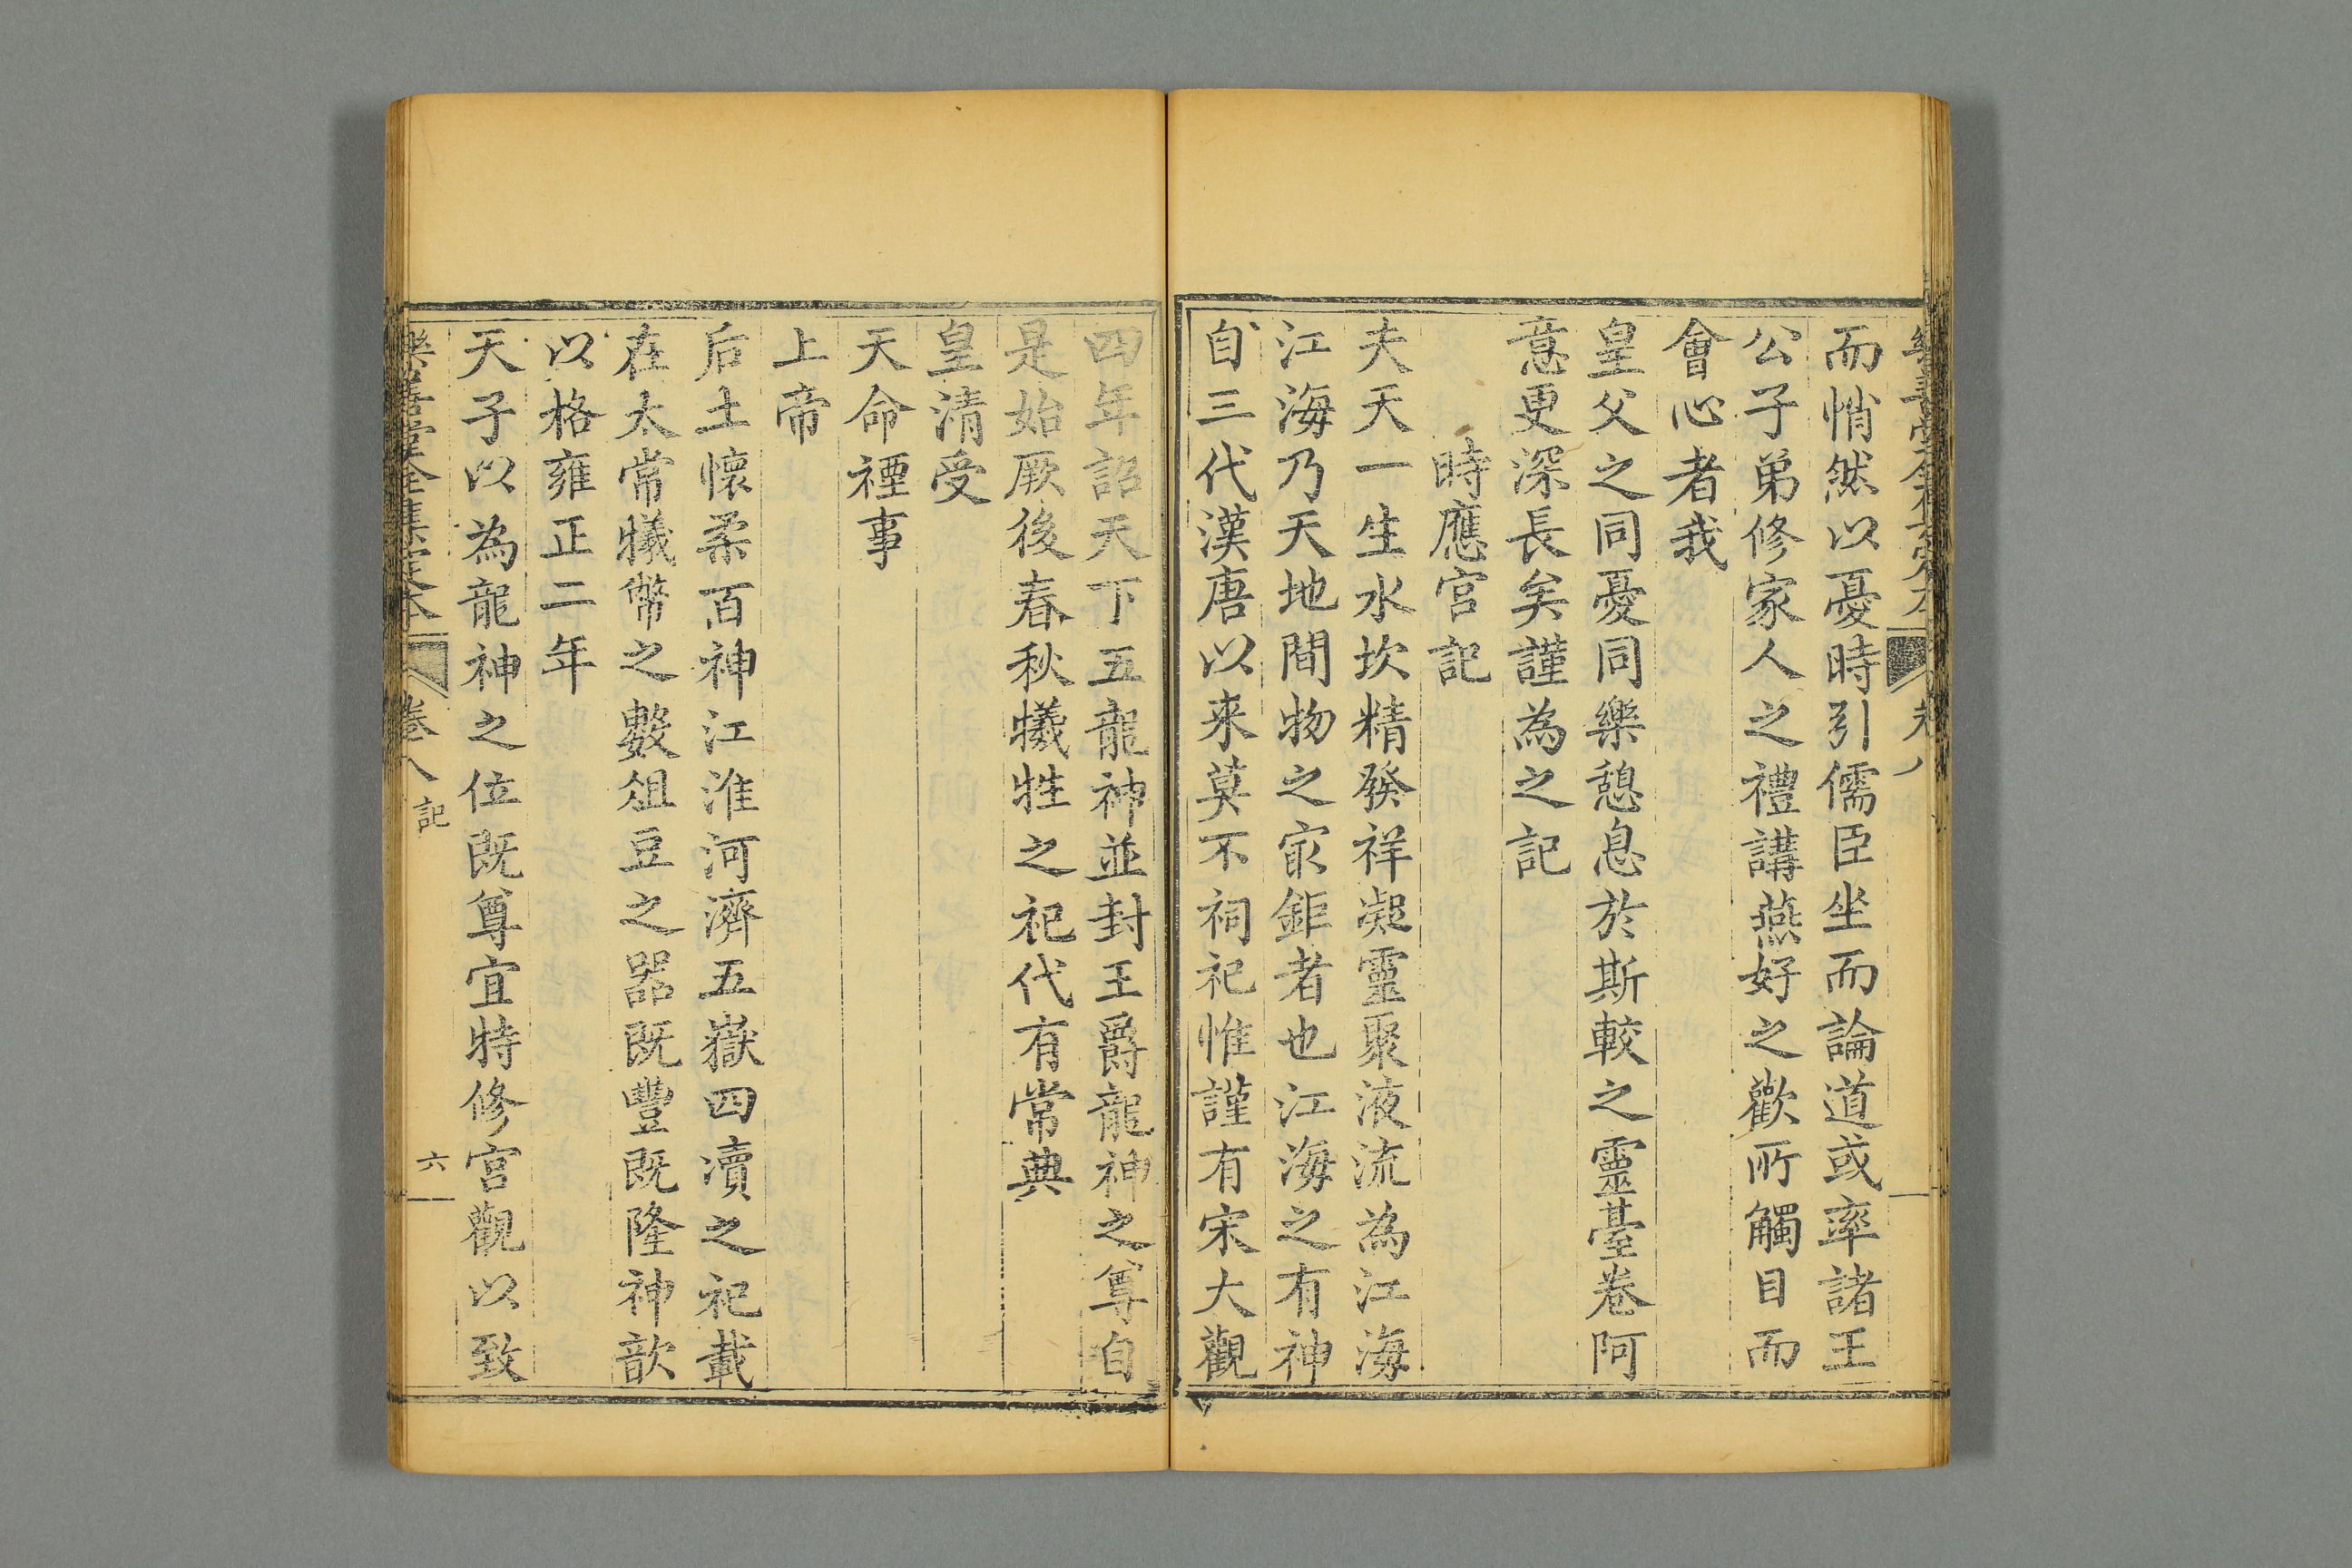 樂善堂全集定本 卷八
而悄然以憂時引儒臣坐而論道或率諸王
公子弟修家人之禮講燕好之歡所觸目而
會心者我
皇父之同憂同樂憩息於斯較之靈臺卷阿
意更深長矣謹為之記
時應宮記
夫天一生水坎精發祥凝靈聚液流為江海
江海乃天地間物之㝡鉅者也江海之有神
自三代漢唐以来莫不祠祀惟謹有宋大觀
四年詔天下五龍神並封王爵龍神之尊自
是始厥後春秋犧牲之祀代有常典
皇清受
天命禋事
上帝
后土懷柔百神江淮河濟五嶽四瀆之祀載
在太常犧幣之數俎豆之器既豐既隆神歆
以格雍正二年
天子以為龍神之位既尊宜特修宮觀以致
樂善堂全集定本 卷八 記 六